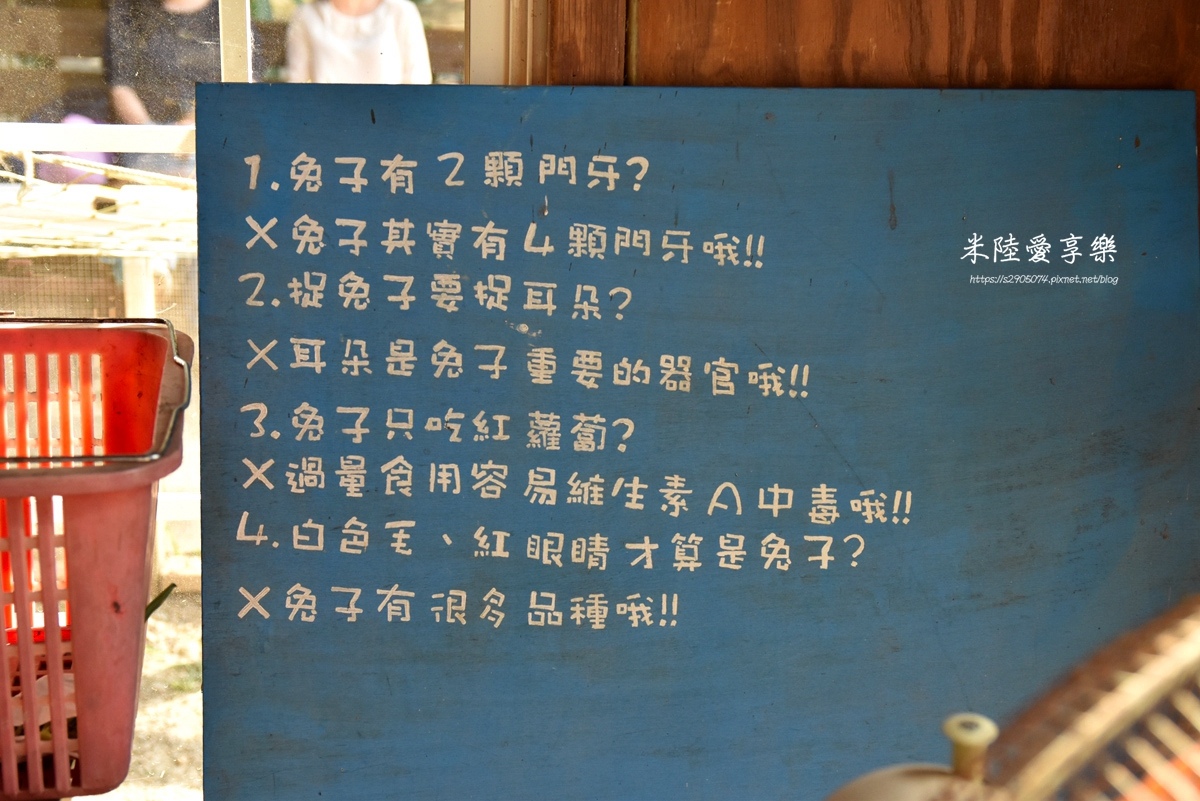 1.兔子有2顆門牙?
X兔子其實有4顆門牙哦!!
2.捉兔子要捉耳朵?
X耳朵是兔子重要的器官哦!!
3.兔子只吃紅蘿蔔?
X過量食用容易維生素A中毒哦!!
4.白色毛、紅眼睛才算是兔子?
X兔子有很多品種哦!!
米陸愛享樂
https://s2905074.pixnet.net/blog